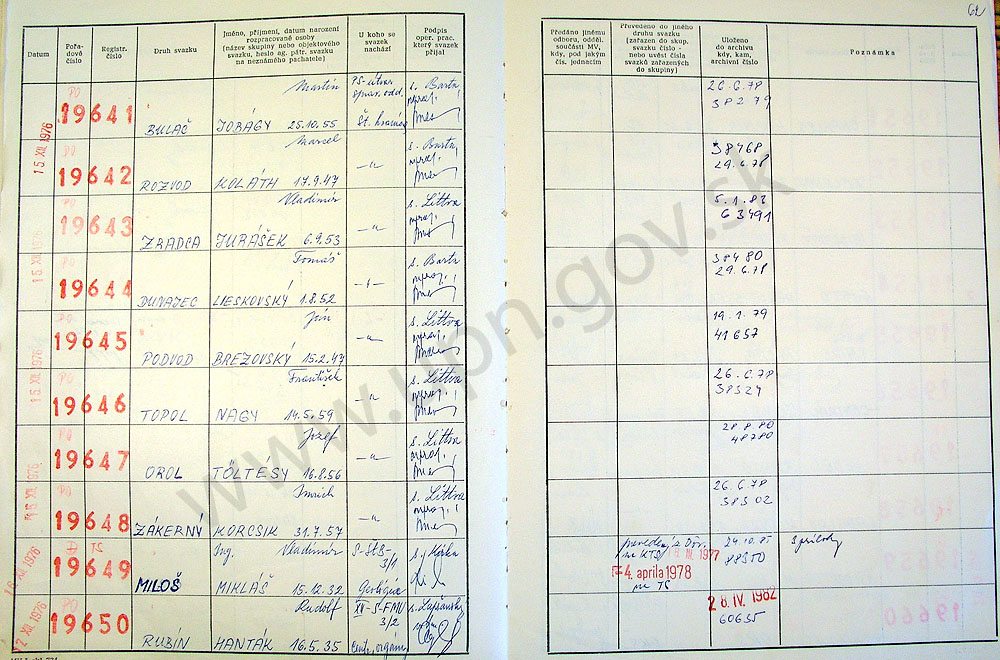 62
Datum
Pořadové číslo
Registr. číslo
Druh svazku
Jméno, příjmení, datum narození
rozpracované osoby
(název skupiny nebo objektového
svazku, heslo ag. pátr. svazku
na neznámého pachatele)
U koho se
svazek
nachází
Podpis
oper. prac.
který svazek
přijal
Předáno jinému
odboru, odděl.
součásti MV,
kdy, pod jakým
čís. jednacím
Převedeno do jiného
druhu svazku
(zařazen do skup.
svazku číslo -
nebo uvést čísla
svazků zařazených
do skupiny)
Uloženo
do archivu
kdy, kam,
archivní číslo
Poznámka
15 XII. 1976
PO
19641
BULAČ
Martin
JOBÁGY 25.10.55
Št. hranica
s. Barta
26.6.78
38279
PO
19642
ROZVOD
Marcel
KOLÁTH 17.9.47
-"-
s. Barta,
38468
29.6.78
15 XII. 1976
PO
19643
ZRADCA
Vladimír
JURÁŠEK 6.9.53
-"-
s. Littva
5.1.83
63491
15 XII. 1976
PO
19644
DUNAJEC
Tomáš
LIESKOVSKÝ 1.8.52
-"-
s. Barta
38480
29.6.78
PO
19645
PODVOD
Ján
BREZOVSKÝ 15.2.47
-"-
s. Littva
19.1.79
41657
15 XII. 1976
PO
19646
TOPOL
František
NAGY 14.5.59
-"-
s. Littva
26.6.78
38324
PO
19647
OROL
Jozef
TÖLTÉSY 16.8.56
-"-
s. Littva
28.8.80
48780
15 XII. 1976
PO
19648
ZÁKERNÝ
Imrich
KORCSIK 31.7.57
-"-
s. Littva
26.6.78
38302
16 XII. 1976
TS
19649
MILOŠ
Ing. Vladimír
MIKLÁŠ 15.12.32
S-ŠtB-
3/1
na KTS
1977
4. apríla 1978
na TS
24.10.85
88350
3 prílohy
PO
19650
RUBÍN
Rudolf
HANTÁK 16.5.35
XII-S-FMV
3/2
28. IV. 1982
60635
www.upn.gov.sk